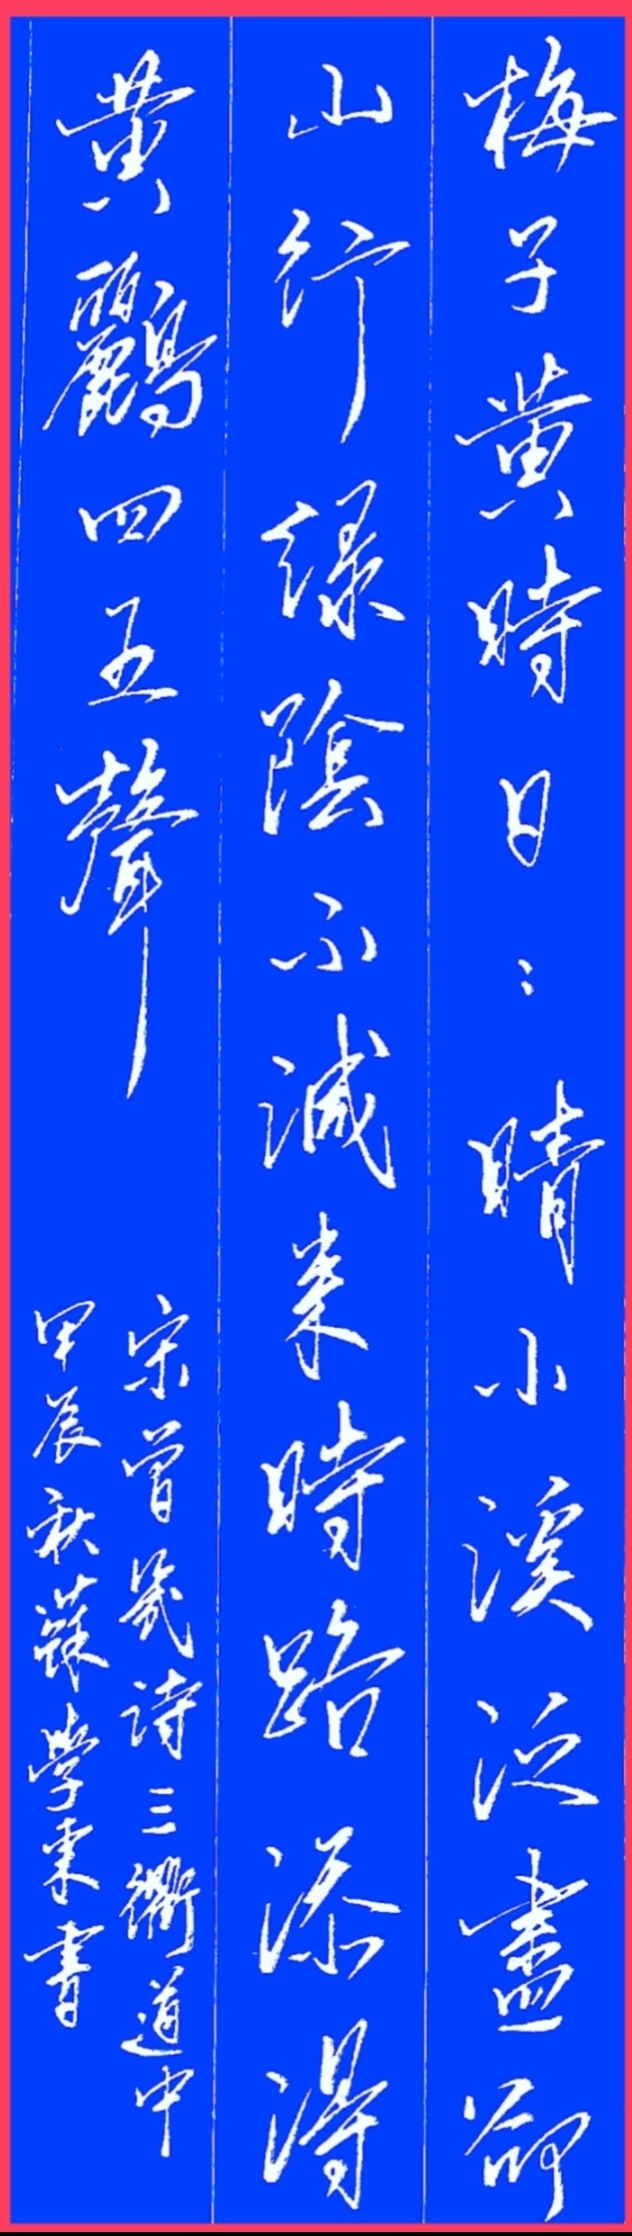 梅子黄時日〻晴小溪泛盡卻
山行緑陰不減来時路添得
黄鸝四五聲
宋曾幾詩三衢道中
甲辰秋蘇學東書